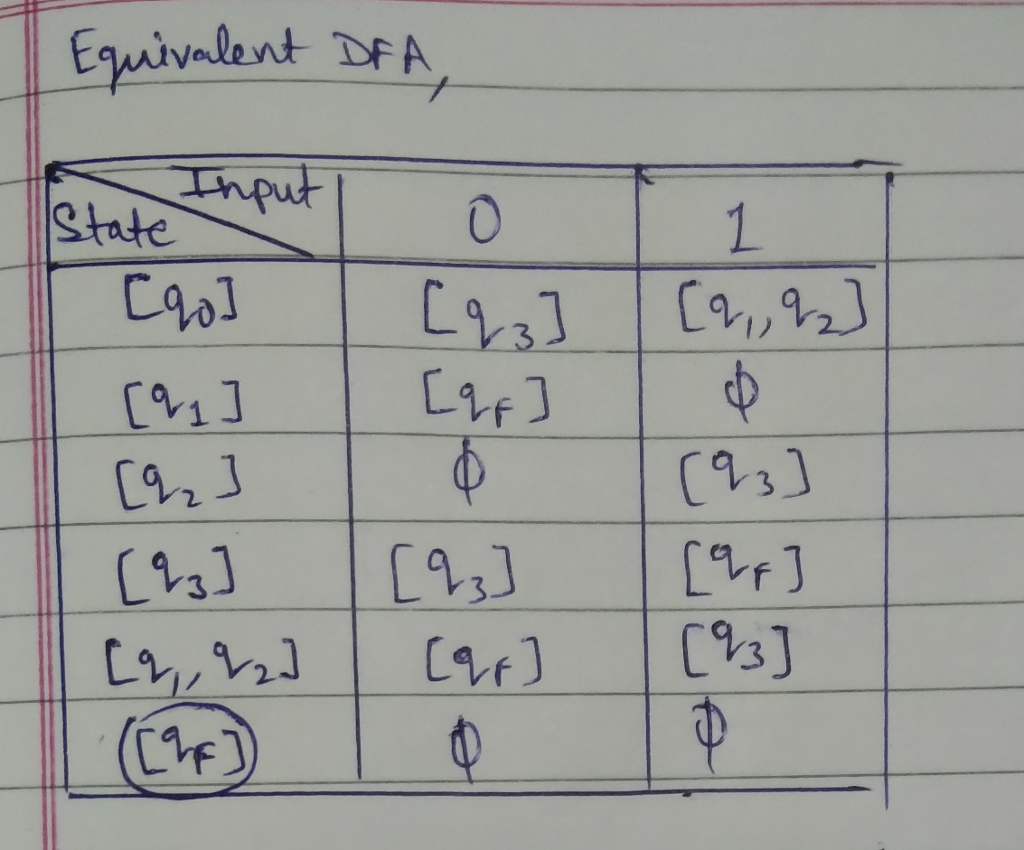 Equivalent DFA,
State Input 0 1
[q0] [q3] [q1, q2]
[q1] [qF] ϕ
[q2] ϕ [q3]
[q3] [q3] [qF]
[q1, q2] [qF] [q3]
[qF] ϕ ϕ